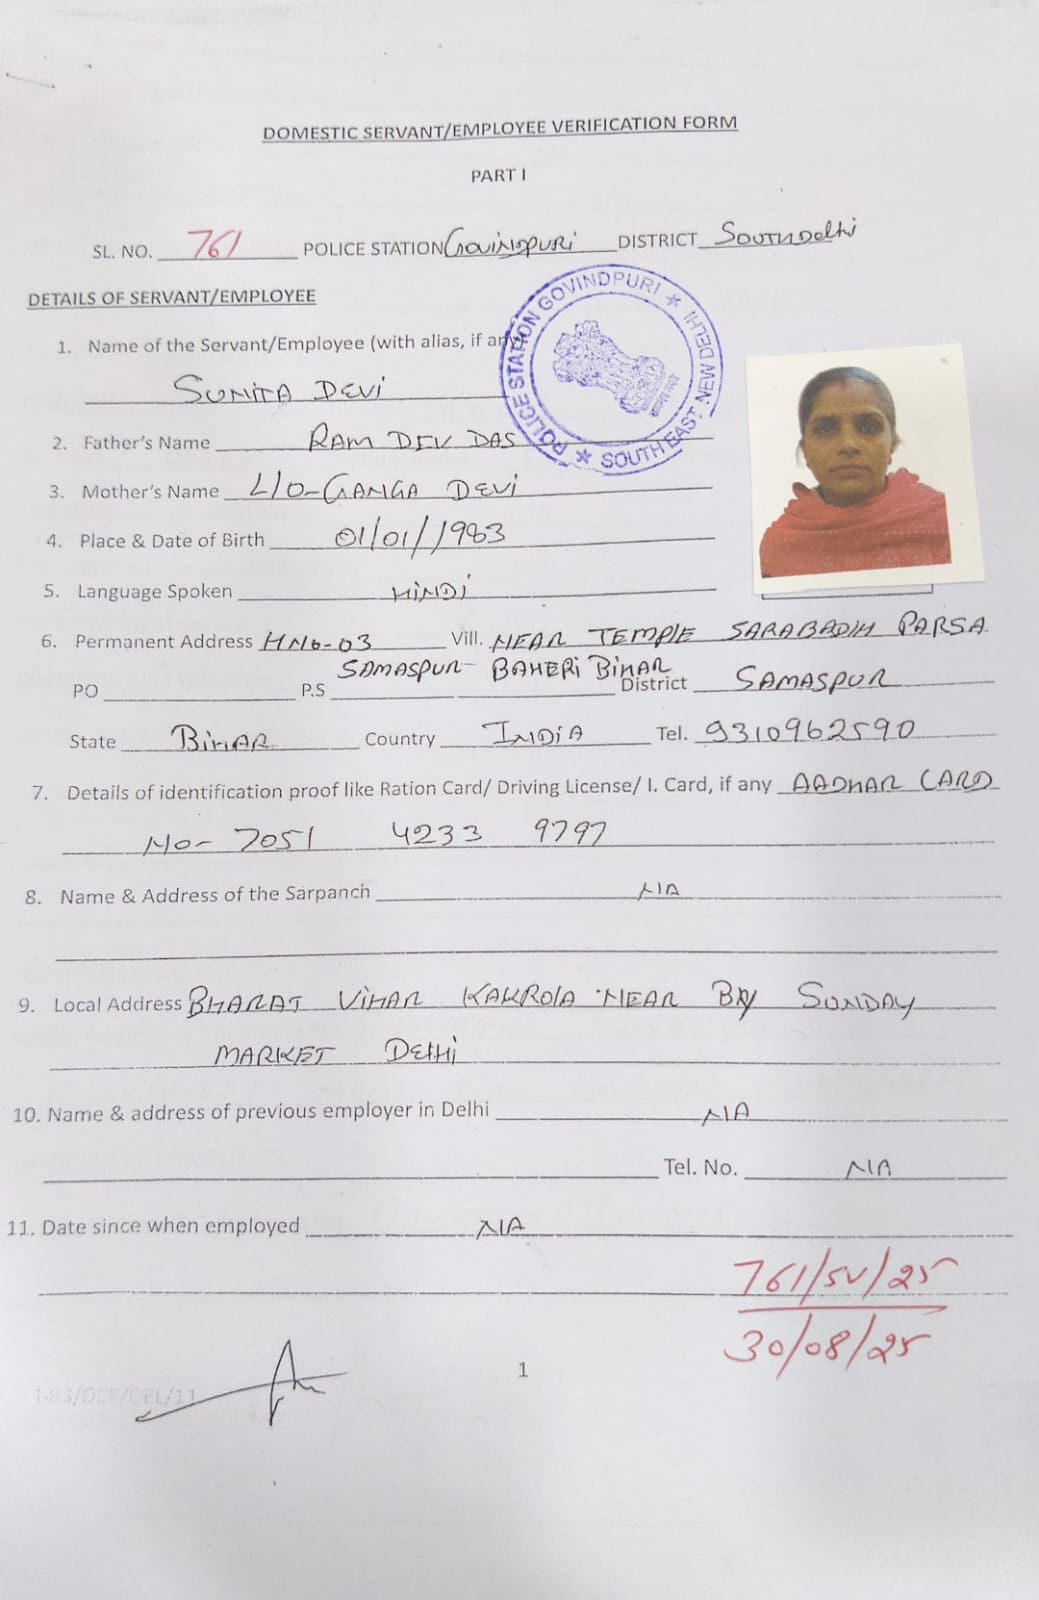 DOMESTIC SERVANT/EMPLOYEE VERIFICATION FORM
PART I
SL. NO. 761 POLICE STATION GOVINDPURI DISTRICT SOUTH Delhi
DETAILS OF SERVANT/EMPLOYEE
POLICE STATION GOVINDPURI ★ SOUTH EAST NEW DELHI ★
1. Name of the Servant/Employee (with alias, if any)
SUNITA DEVI
2. Father's Name RAM DEV DAS
3. Mother's Name L/O-GANGA DEVI
4. Place & Date of Birth 01/01/1983
5. Language Spoken HINDI
6. Permanent Address HNO-03 Vill. NEAR TEMPLE SARABADIH PARSA
SAMASPUR- BAHERI BIHAR
PO P.S District SAMASPUR
State BIHAR Country INDIA Tel. 9310962590
7. Details of identification proof like Ration Card/ Driving License/ I. Card, if any AADHAR CARD
NO- 7051 4233 9797
8. Name & Address of the Sarpanch NIA
9. Local Address BHARAT VIHAR KAKROLA NEAR SUNDAY
MARKET DElHi
10. Name & address of previous employer in Delhi NIA
Tel. No. NIA
11. Date since when employed NIA
761/SV/25
30/08/25
1